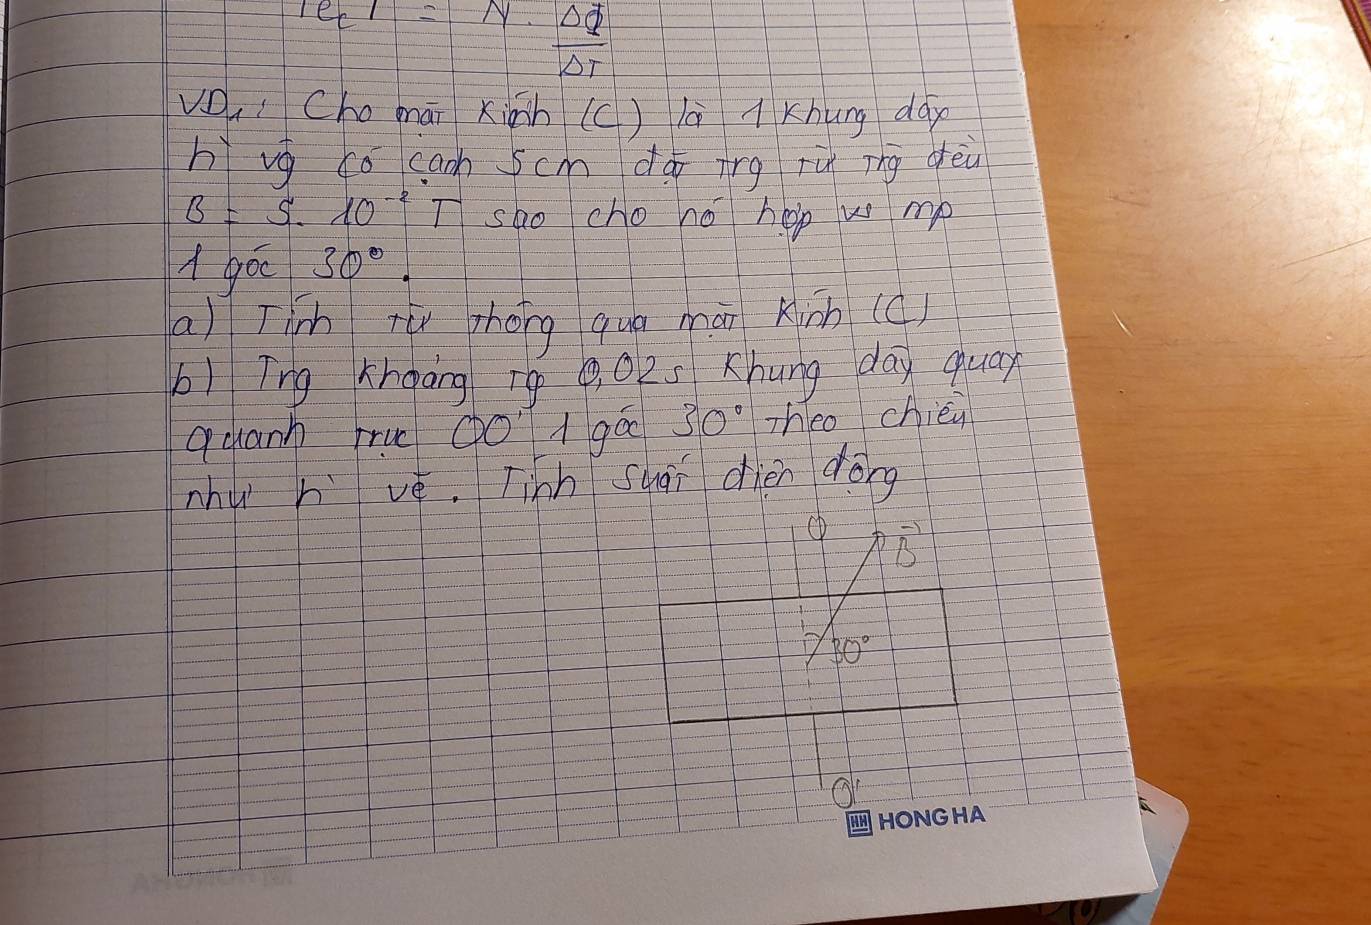 |ec| = N. ΔΦ
ΔT
VD1: Cho mạ̄T Kính (C) là 1 Khung dây
h̀ vg có cạnh 5cm đặT Trg Từ Trg đều
B = 5. 10⁻² T sao cho nó hợp vs mp
1 góc 30°.
a) Tính Từ Thông qua mạ̄T Kính (C)
b) Trg Khoảng Tg 0,02s Khung dây quay
quanh Trục OO' 1 góc 30° Theo chiều
như h̀ vẽ. Tính suấT điện động
O
B⃗
30°
O'
HH HONG HA